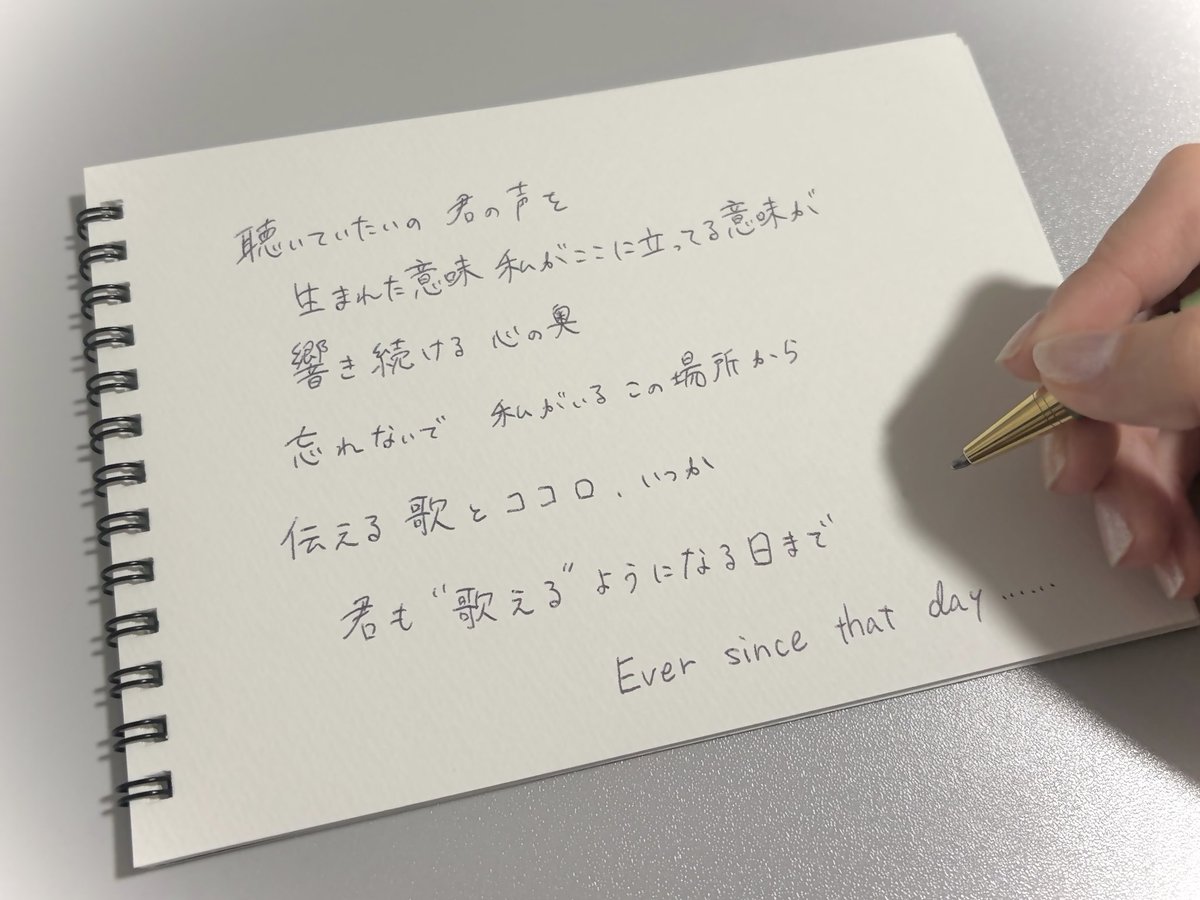 聴いていたいの 君の声を
生まれた意味 私がここに立ってる意味が
響き続ける 心の奥
忘れないで 私がいる この場所から
伝える 歌とココロ、いつか
君も“歌える”ようになる日まで
Ever since that day……